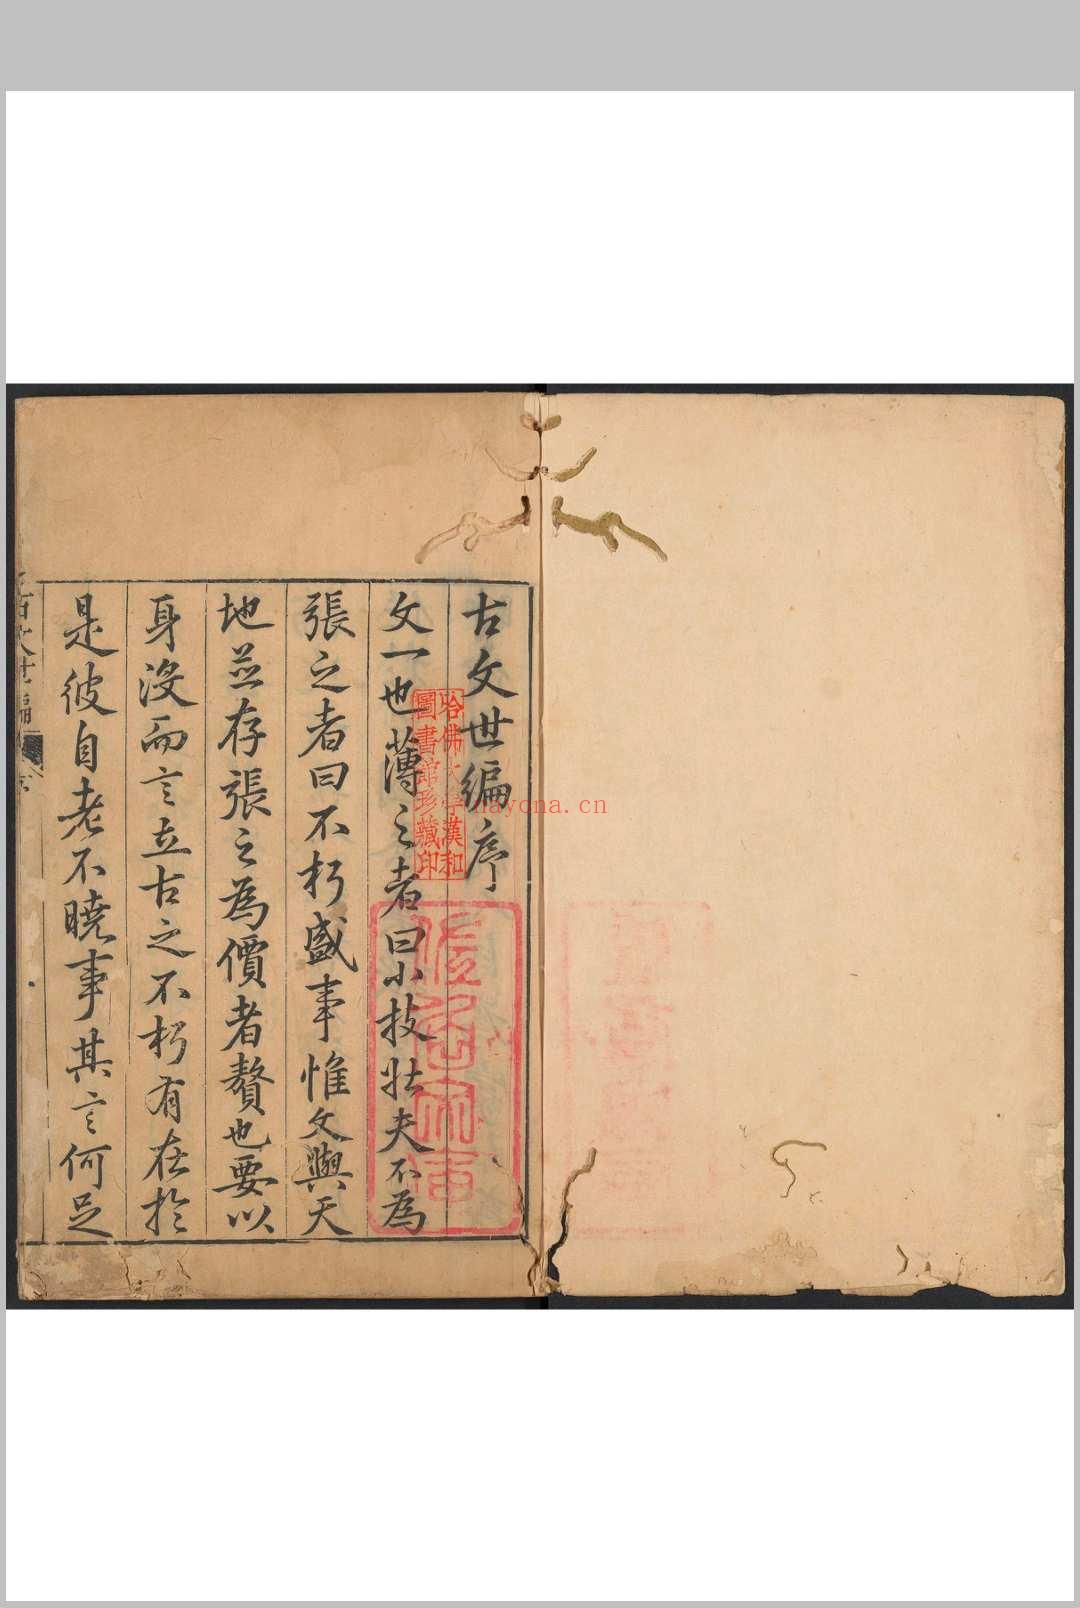 古文世編序
文一也薄之者曰小技壯夫不為
張之者曰不朽盛事惟文與天
地並存張之為價者贅也要以
身沒而言立古之不朽有在於
是彼自老不曉事其言何足
哈佛大學漢和
圖書館珍藏印
nayona.cn